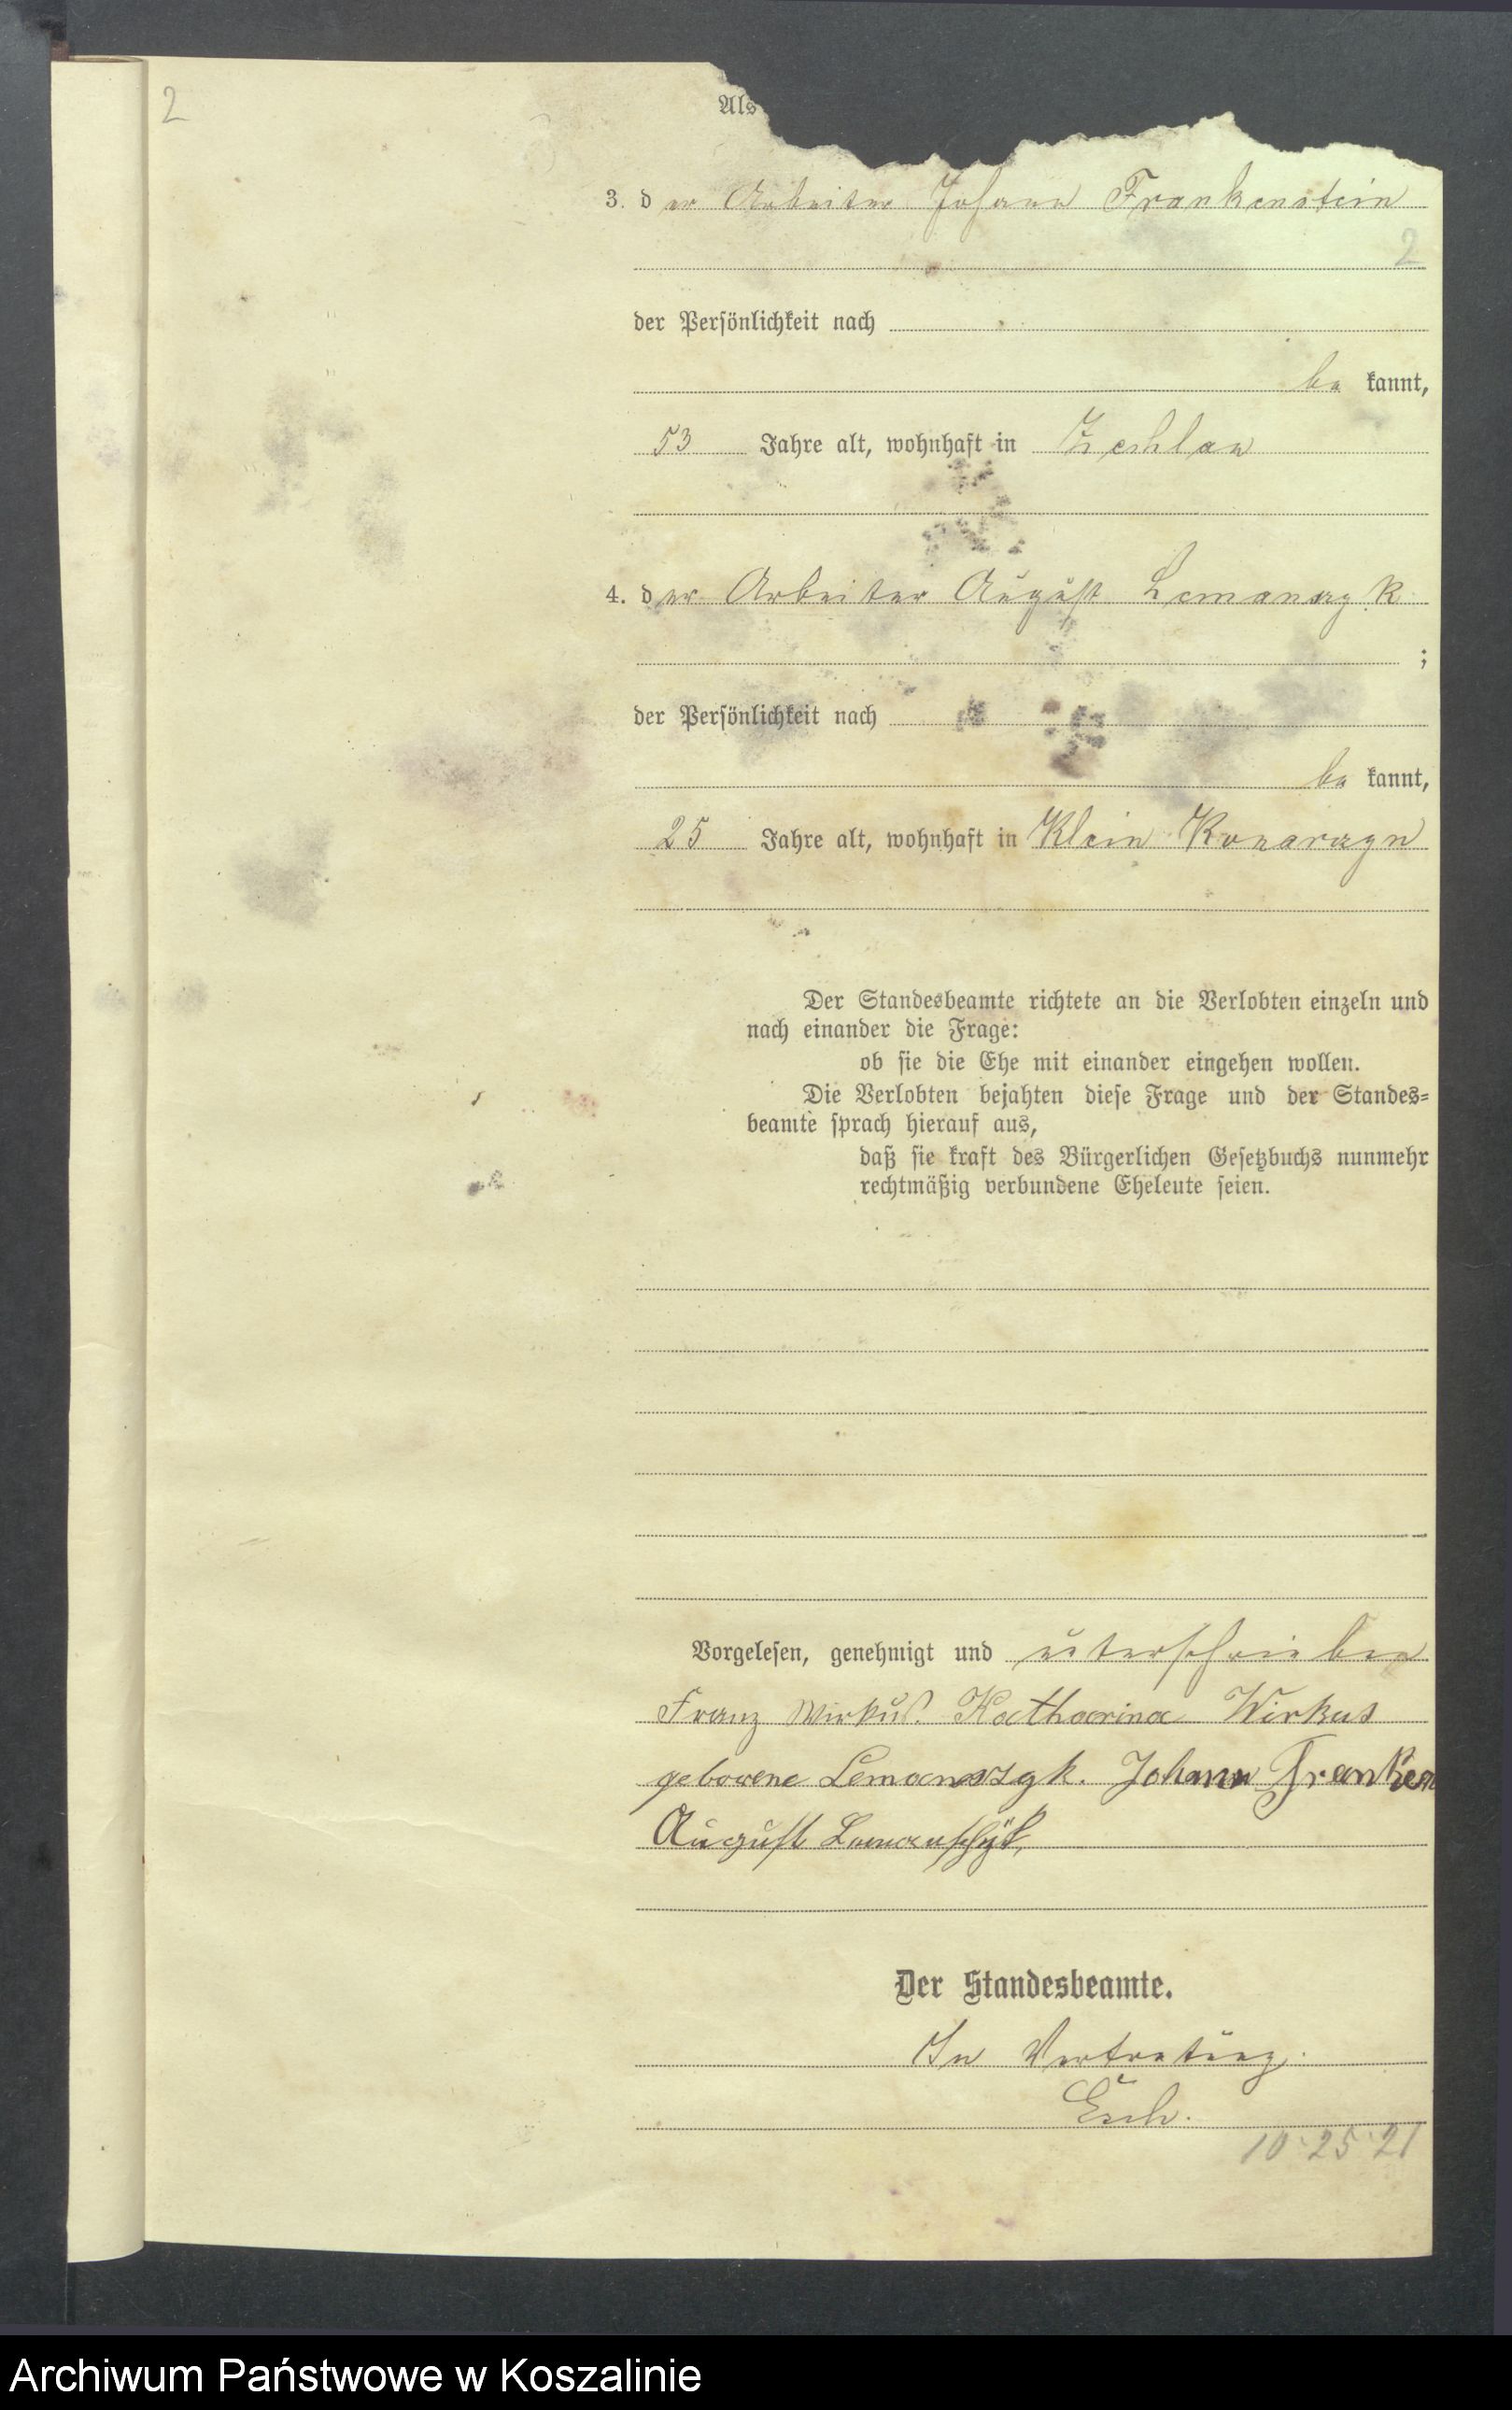 2
Als
3. der Arbeiter Johann Frankenstein
2
der Persönlichkeit nach
be kannt,
53 Jahre alt, wohnhaft in Zechlau
4. der Arbeiter August Lemanszyk
;
der Persönlichkeit nach
be kannt,
25 Jahre alt, wohnhaft in Klein Konarzyn
Der Standesbeamte richtete an die Verlobten einzeln und
nach einander die Frage:
ob sie die Ehe mit einander eingehen wollen.
Die Verlobten bejahten diese Frage und der Standes-
beamte sprach hierauf aus,
daß sie kraft des Bürgerlichen Gesetzbuchs nunmehr
rechtmäßig verbundene Eheleute seien.
Vorgelesen, genehmigt und unterschrieben
Franz Wirkus. Katharina Wirkus
geborene Lemanszyk. Johann Franken
August Lemanschyk,
Der Standesbeamte.
In Vertretung.
10·25·21
Archiwum Państwowe w Koszalinie